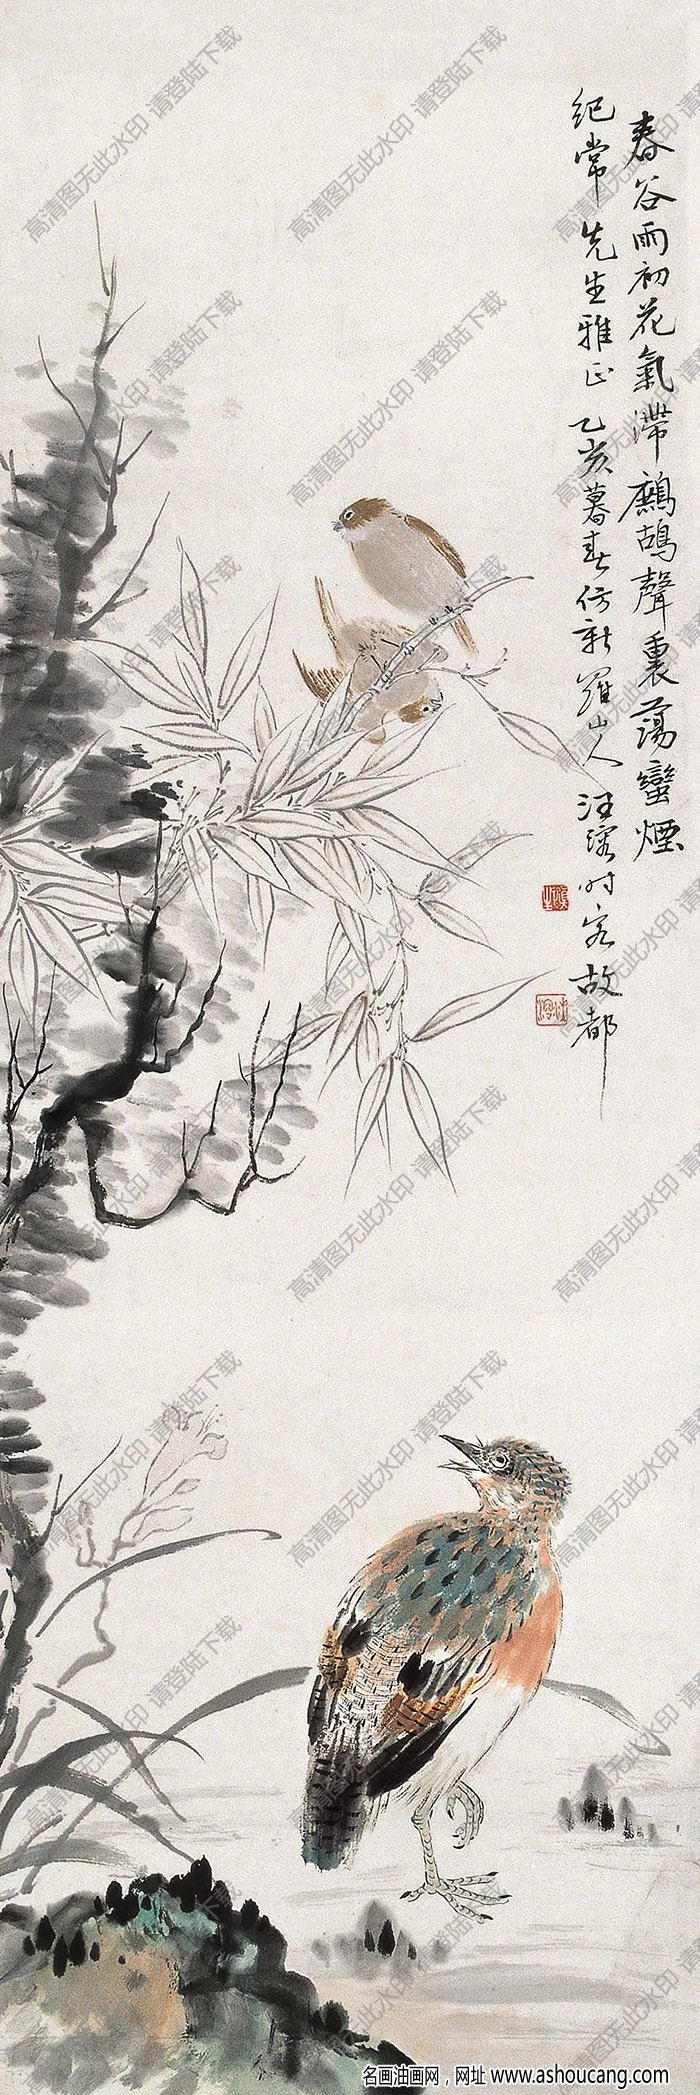 春谷雨初花氣滯鷓鴣聲裏蕩蠻煙
紀常先生雅正乙亥暮春仿新羅山人汪溶时客故都
高清图无此水印 请登陆下载
名画油画网，网址 www.ashoucang.com